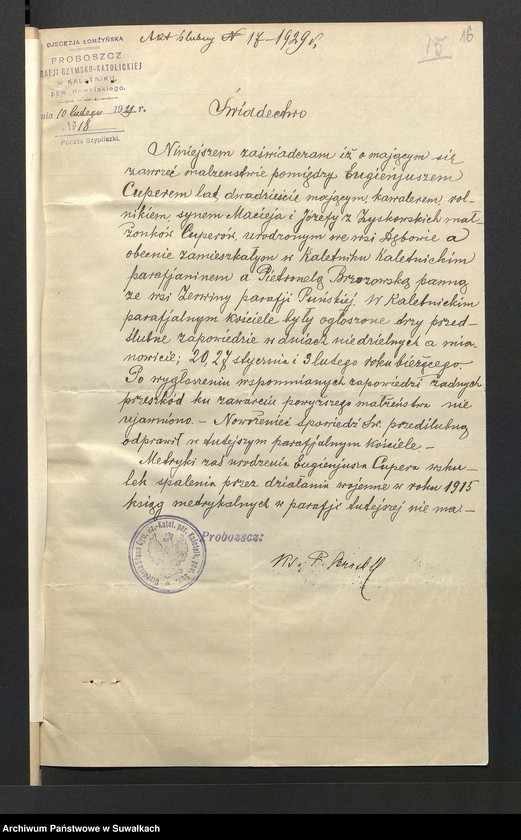 Akt ślubny № 17-1929 r.
15
16
DJECEZJA ŁOMŻYŃSKA
PROBOSZCZ
PARAFJI RZYMSKO-KATOLICKIEJ
W KALETNIKU,
pow. Suwalskiego.
dnia 10 lutego 1929 r.
№ 18
Poczta Szypliszki.
Świadectwo
Niniejszem zaświadczam iż o mającym się
zawrzeć małżeństwie pomiędzy Eugienjuszem
Cuperem lat dwadzieście mającym, kawalerem, rol-
nikiem, synem Macieja i Józefy z Zyskowskich mał-
żonków Cuperów, urodzonym we wsi Dębowie a
obecnie zamieszkałym w Kaletniku Kaletnickim
parafjaninem a Pietronelą Brzozowską panną
ze wsi Zerwiny parafji Puńskiej. W Kaletnickim
parafjalnym kościele były ogłoszone trzy przed-
ślubne zapowiedzie w dniach niedzielnych a mia-
nowicie; 20, 27 stycznia i 3 lutego roku bieżącego.
Po wygłoszeniu wspomnianych zapowiedzi żadnych
przeszkód ku zawarciu powyższego małżeństwa nie
ujawniono. – Nowożeniec spowiedź św. przedślubną
odprawił w tutejszym parafjalnym kościele –
Metryki zaś urodzenia Eugienjusza Cupera wsku-
tek spalenia przez działania wojenne w roku 1915
ksiąg metrykalnych w parafji tutejszej nie ma. –
Proboszcz:
Ks. F.
Archiwum Państwowe w Suwałkach